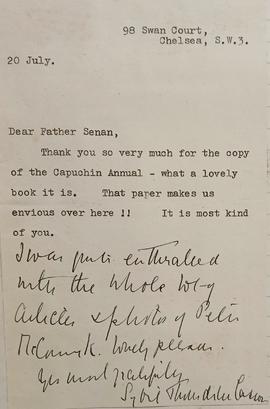 98 Swan Court,
Chelsea, S.W.3.
20 July.
Dear Father Senan,
Thank you so very much for the copy
of the Capuchin Annual - what a lovely
book it is. That paper makes us
envious over here !! It is most kind
of you.
I was quite enthralled
with the whole
Articles & photos of
McCormick. lovely
Yrs most gratefully
Sybil Thorndike Casson